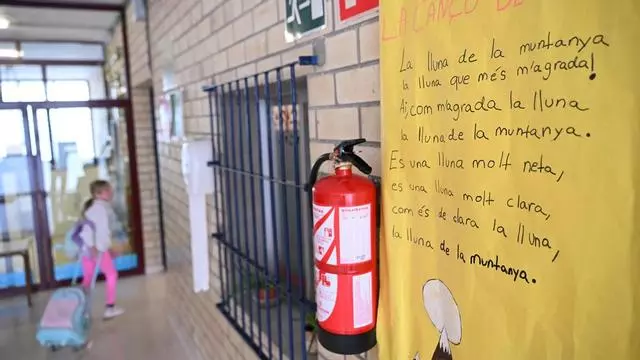 LA CANÇÓ DE
La lluna de la muntanya
la lluna que més m'agrada!
Ai, com m'agrada la lluna
la lluna de la muntanya.
És una lluna molt neta,
és una lluna molt clara,
com és de clara la lluna,
la lluna de la muntanya.